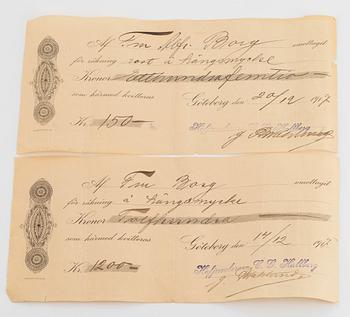 Af Fru Alfr. Borg emottagit
för räkning rest å hängsmycke
Kronor Etthundrafemtio
som härmed kvitteras Göteborg den 20/12 1917
Kr. 150-
Af Fru Borg emottagit
för räkning å hängsmycke
Kronor Tolfhundra
som härmed kvitteras Göteborg den 14/12 1917
Kr. 1200-
Hofjuvelerare C. D. Hallberg